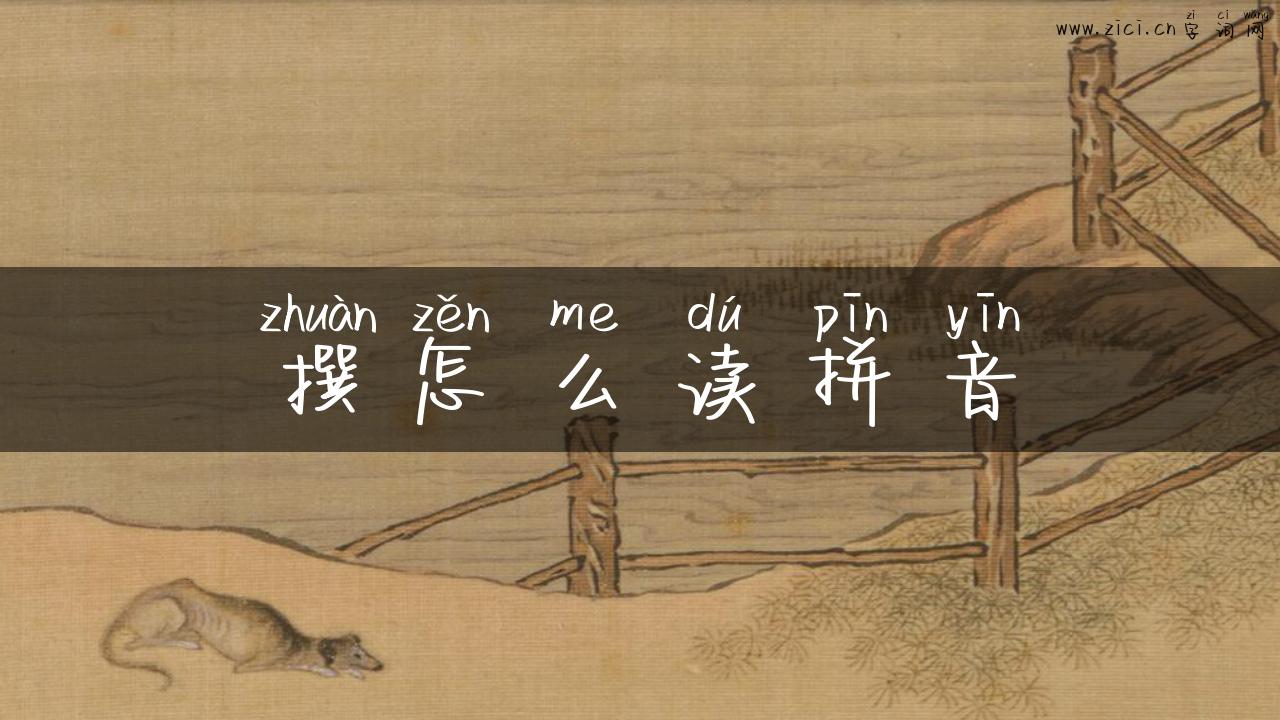 zì cí wǎng
www.zici.cn 字词网
zhuàn zěn me dú pīn yīn
撰怎么读拼音